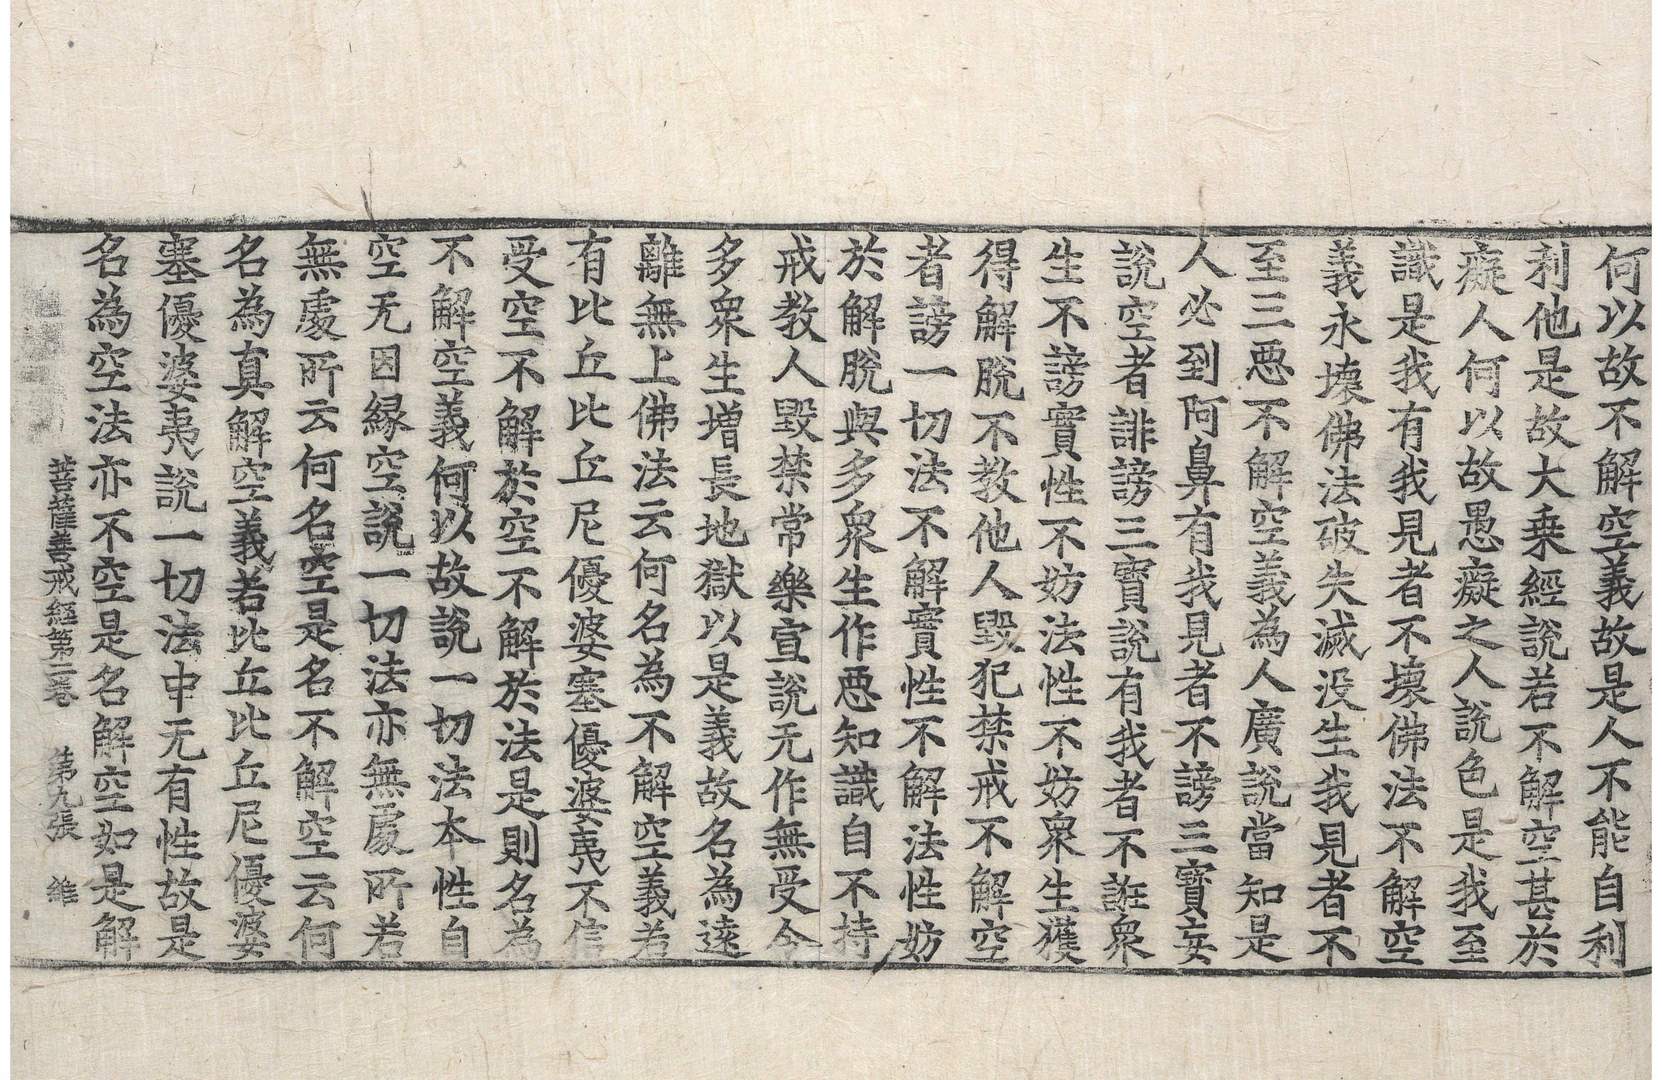 何以故不解空義故是人不能自利
利他是故大乗經說若不解空甚於
癡人何以故愚癡之人說色是我至
識是我有我見者不壞佛法不解空
義永壞佛法破失滅没生我見者不
至三惡不解空義為人廣說當知是
人必到阿鼻有我見者不謗三寶妄
說空者誹謗三寶說有我者不誑衆
生不謗實性不妨法性不妨衆生獲
得解脫不教他人毀犯禁戒不解空
者謗一切法不解實性不解法性妨
於解脫與多衆生作惡知識自不持
戒教人毀禁常樂宣說无作無受令
多衆生增長地獄以是義故名為遠
離無上佛法云何名為不解空義若
有比丘比丘尼優婆塞優婆夷不信
受空不解於空不解於法是則名為
不解空義何以故說一切法本性自
空无因緣空說一切法亦無處所若
無處所云何名空是名不解空云何
名為真解空義若比丘比丘尼優婆
塞優婆夷說一切法中无有性故是
名為空法亦不空是名解空如是解
菩薩善戒經第二卷 第九張 維